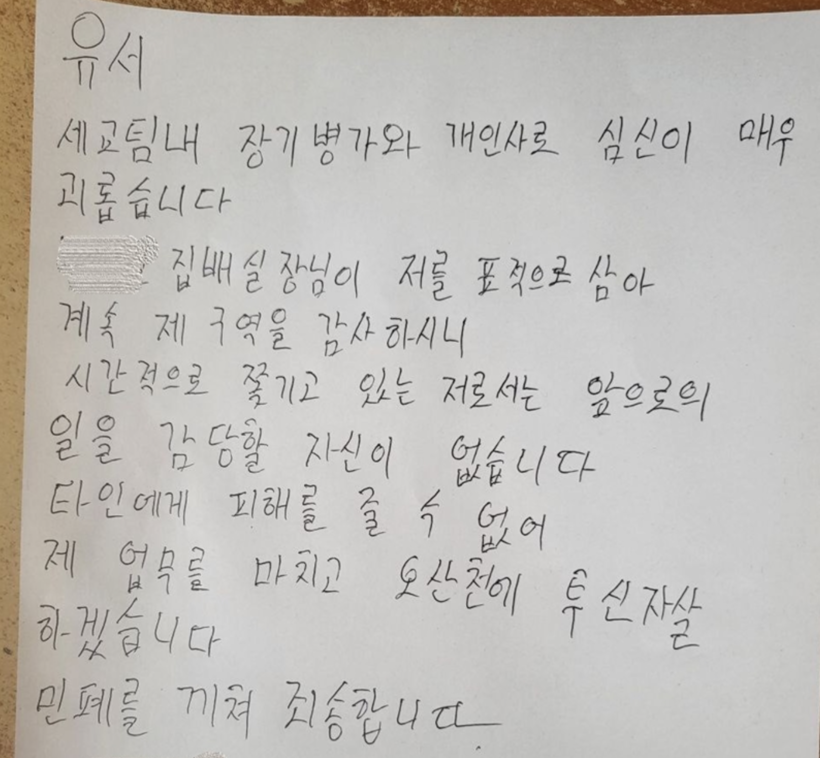 유서
세교팀내 장기병가와 개인사로 심신이 매우
괴롭습니다
집배실장님이 저를 표적으로 삼아
계속 제 구역을 감사하시니
시간적으로 쫓기고 있는 저로서는 앞으로의
일을 감당할 자신이 없습니다
타인에게 피해를 줄 수 없어
제 업무를 마치고 오산천에 투신자살
하겠습니다
민폐를 끼쳐 죄송합니다